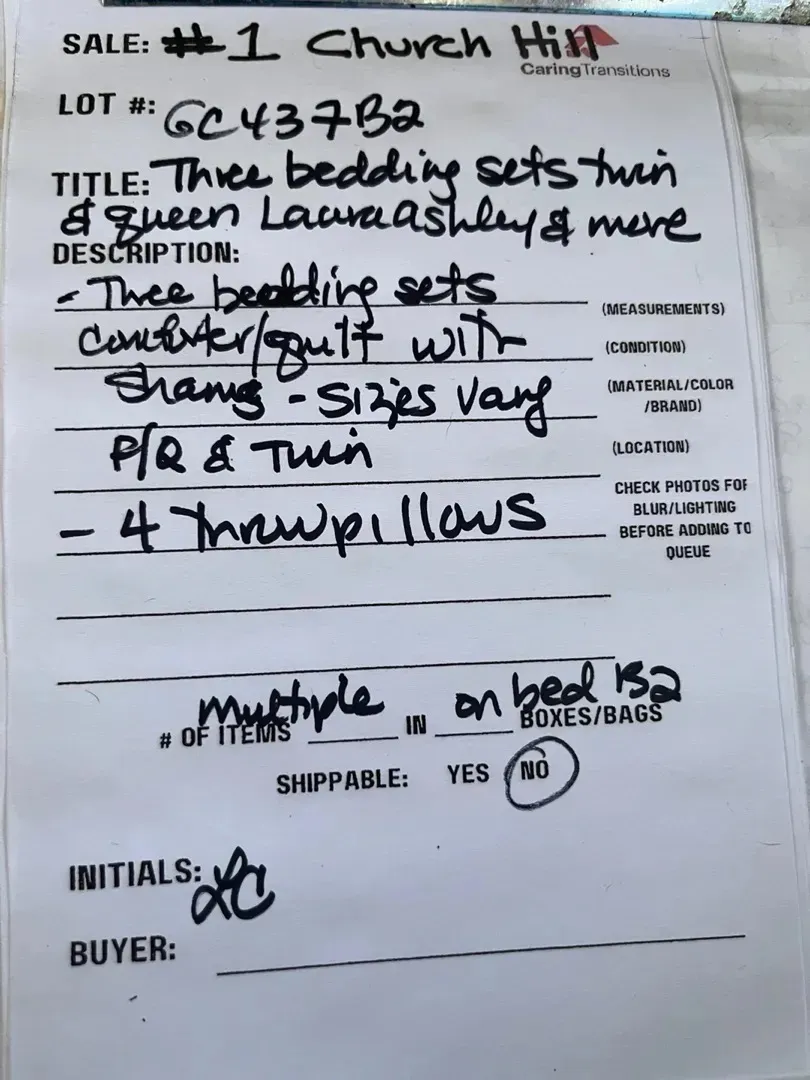 SALE: #1 Church Hill
CaringTransitions
LOT #: GC437B2
TITLE: Three bedding sets twin
& queen Laura Ashley & more
DESCRIPTION:
- Three bedding sets
(MEASUREMENTS)
comforter/quilt with
(CONDITION)
Shams - Sizes vary
(MATERIAL/COLOR
/BRAND)
F/Q & Twin
(LOCATION)
- 4 Throw pillows
CHECK PHOTOS FOR
BLUR/LIGHTING
BEFORE ADDING TO
QUEUE
# OF ITEMS multiple IN on bed B2 BOXES/BAGS
SHIPPABLE: YES NO
INITIALS: LC
BUYER: